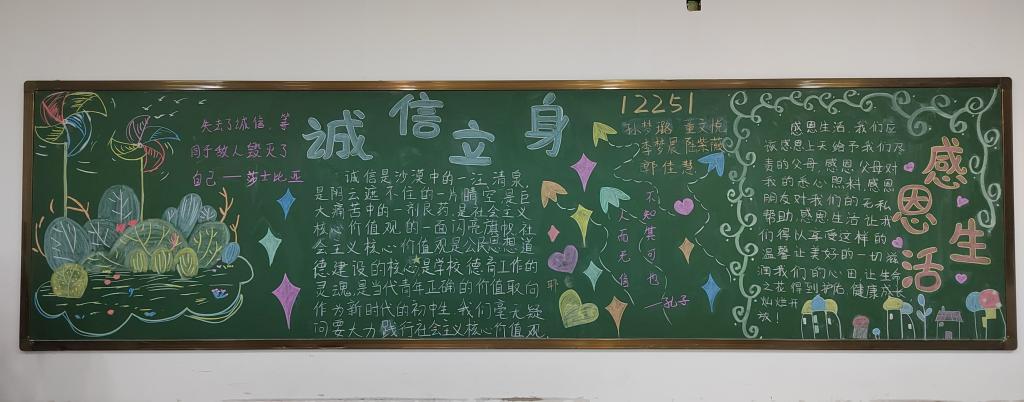 失去了诚信，等
同于敌人毁灭了
自己——莎士比亚
诚信立身
诚信是沙漠中的一江清泉,
是阴云遮不住的一片晴空,是巨
大痛苦中的一剂良药,是社会主义
核心价值观的一面闪亮旗帜社
会主义核心价值观是公民思想道
德建设的核心是学校德育工作的
灵魂,是当代青年正确的价值取向
作为新时代的初中生,我们毫无疑
问要大力践行社会主义核心价值观.
12251
孙梦璐
李梦晨
郭佳慧
人而无信
不知其可也
——孔子
感恩生活,我们应
该感恩上天给予我们尽
责的父母,感恩父母对
我的悉心照料,感恩
朋友对我们的无私
帮助,感恩生活让我
们得以享受这样的
温馨让美好的一切滋
润我们的心田,让生命
之花得到护佑,健康成长
灿烂开
放!
感恩生活